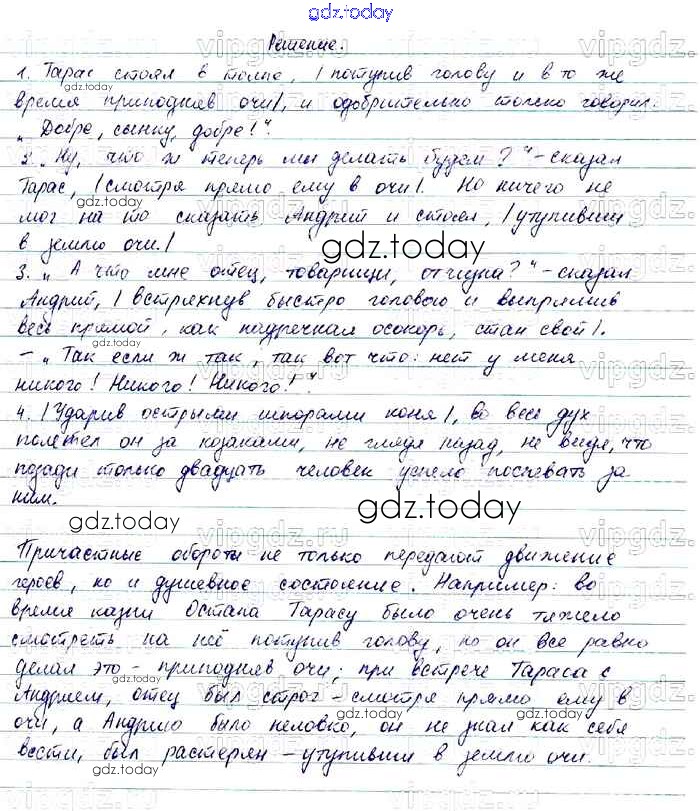 gdz.today
Решение.
1. Тарас стоял в толпе, |потупив голову и в то же
время приподняв очи|, и одобрительно только говорил:
„Добре, сынку, добре!“.
2. „Ну, что ж теперь мы делать будем?“ – сказал
Тарас, |смотря прямо ему в очи|. Но ничего не
gdz.today
мог на то сказать Андрий и стоял, |утупивши
в землю очи.|
gdz.today
3. „А что мне отец, товарищи, отчизна?“ – сказал
Андрий, |встряхнув быстро головою и выпрямив
весь прямой, как надречная осокорь, стан свой|.
– „Так если ж так, так вот что: нет у меня
никого! Никого! Никого!“.
4. |Ударив острыми шпорами коня|, во весь дух
полетел он за козаками, не глядя назад, не видя, что
позади только двадцать человек успело поспевать за
ним.
gdz.today
gdz.today
Причастные обороты не только передают движение
героев, но и душевное состояние. Например: во
время казни Остапа Тарасу было очень тяжело
смотреть на неё потупив голову, но он все равно
делал это – приподняв очи; при встрече Тараса с
gdz.today
Андрием, отец был строг – смотря прямо ему в
очи, а Андрию было неловко, он не знал как себя
gdz.today
вести, был растерян – утупивши в землю очи.
gdz.today